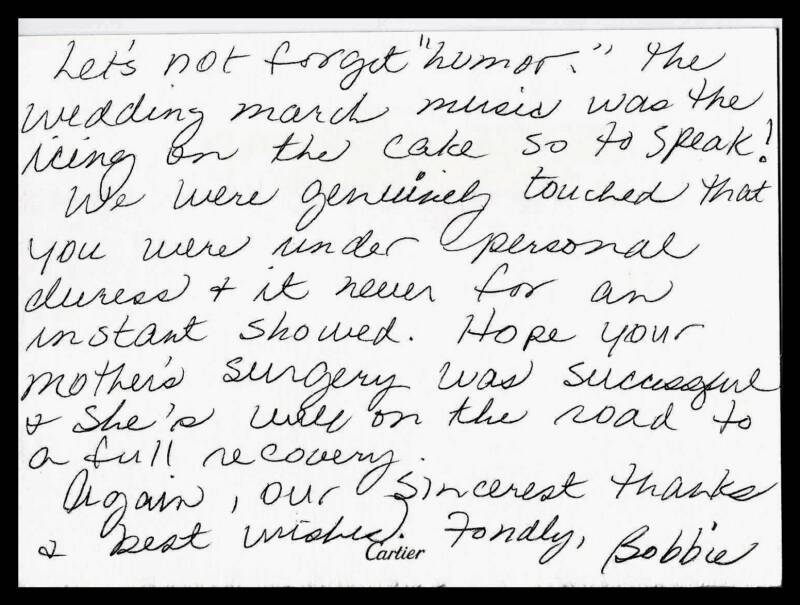 Let's not forget "humor." The
wedding march music was the
icing on the cake so to speak!
We were genuinely touched that
you were under personal
duress & it never for an
instant showed. Hope your
mother's surgery was successful
& she's well on the road to
a full recovery.
Again, our sincerest thanks
& best wishes. Fondly, Bobbie
Cartier